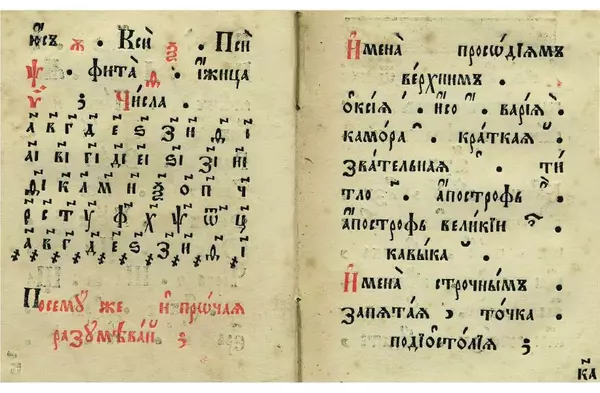 юсъ ѫ • Ксѝ ѯ • Псѝ
ѱ • фита̀ ѳ • и҆́жица
ѵ ; Чи́сла •
а҃ в҃ г҃ д҃ е҃ ѕ҃ з҃ и҃ ѳ҃ і҃
аі ві гі ді еі ѕі зі иі
ѳі к л м н ѯ о п ч
р с т у ф х ѱ ѿ ц
а в г д е ѕ з и ѳ і
Посему́ же и҆ про́чая
разумѣва́й ;
И҆мена̀ просѡді́ямъ
ве́рхнимъ •
ѻ҆ксі́а • и҆́со • варі́а •
камо́ра • кра́ткая •
зва́тельная • ти́
тло • а҆по́строфъ •
а҆по́строфъ вели́кїи •
кавы́ка •
И҆мена̀ стро́чнымъ •
запята́я , то́чка •
подїѡсто́лїя ;
ка